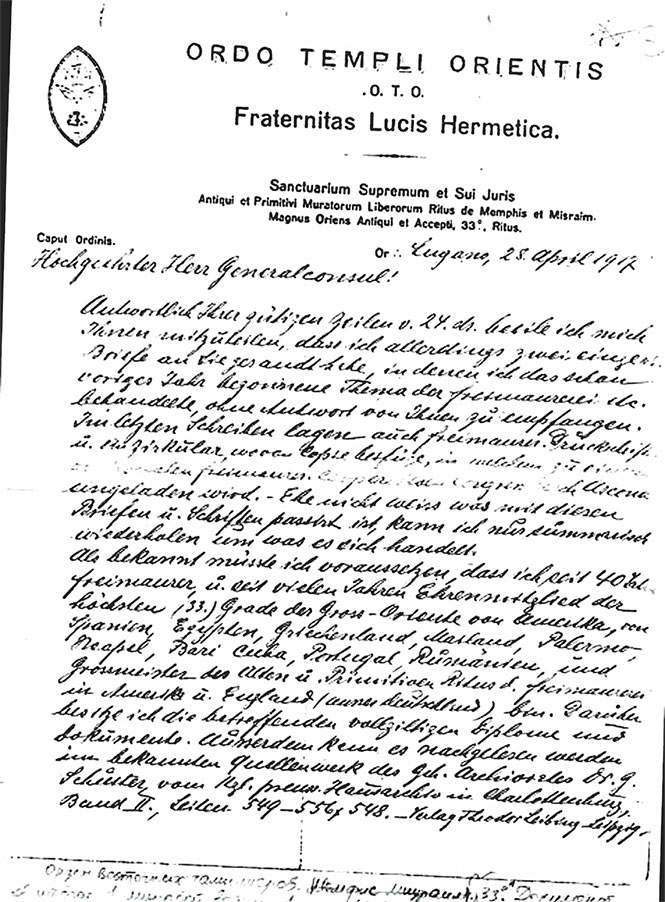 ORDO TEMPLI ORIENTIS
.O. T. O.
Fraternitas Lucis Hermetica.
Sanctuarium Supremum et Sui Juris
Antiqui et Primitivi Muratorum Liberorum Ritus de Memphis et Misraim.
Magnus Oriens Antiqui et Accepti, 33°, Ritus.
Caput Ordinis.
Or ∴ Lugano, 28. April 1917
Hochgeehrter Herr Generalconsul!
Antwortlich Ihrer gütigen Zeilen v. 24. ds. beeile ich mich
Ihnen mitzuteilen, dass ich allerdings zwei
Briefe an Sie gesandt habe, in denen ich das schon
voriges Jahr begonnene Thema der Freimaurerei etc.
behandelte, ohne Antwort von Ihnen zu empfangen.
Im letzten Schreiben lagen auch freimaurer.
u. ein Zirkular, wovon Copie beifüge, in welchem zu
freimaurer. Ascona
eingeladen wird. - Ehe nicht weiss was mit diesen
Briefen u. Schriften passirt ist, kann ich nur summarisch
wiederholen um was es sich handelt.
Als bekannt müsste ich voraussetzen, dass ich, seit 40
Freimaurer, u. seit vielen Jahren Ehrenmitglied der
höchsten (33.) Grade der Gross-Oriente von Amerika, von
Spanien, Egypten, Griechenland, Mailand, Palermo,
Neapel, Bari, Cuba, Portugal, Rumänien, und
Grossmeister des Alten u. Primitiven Ritus d. Freimaurerei
in Amerika u. England (ausser Deutschland) bin. Darüber
besitze ich die betreffenden vollgiltigen Diplome und
Dokumente. Ausserdem kann es nachgelesen werden
im bekannten Quellenwerk des Geh. Archivrates Dr. G.
Schuster, vom Kgl. preuss. Hausarchiv in Charlottenburg,
Band II., Seiten 549-556, 548. - Verlag Theodor Leibing Leipzig.
Орден Восточных тамплиеров. Мемфис Мицраим, 33° Документ